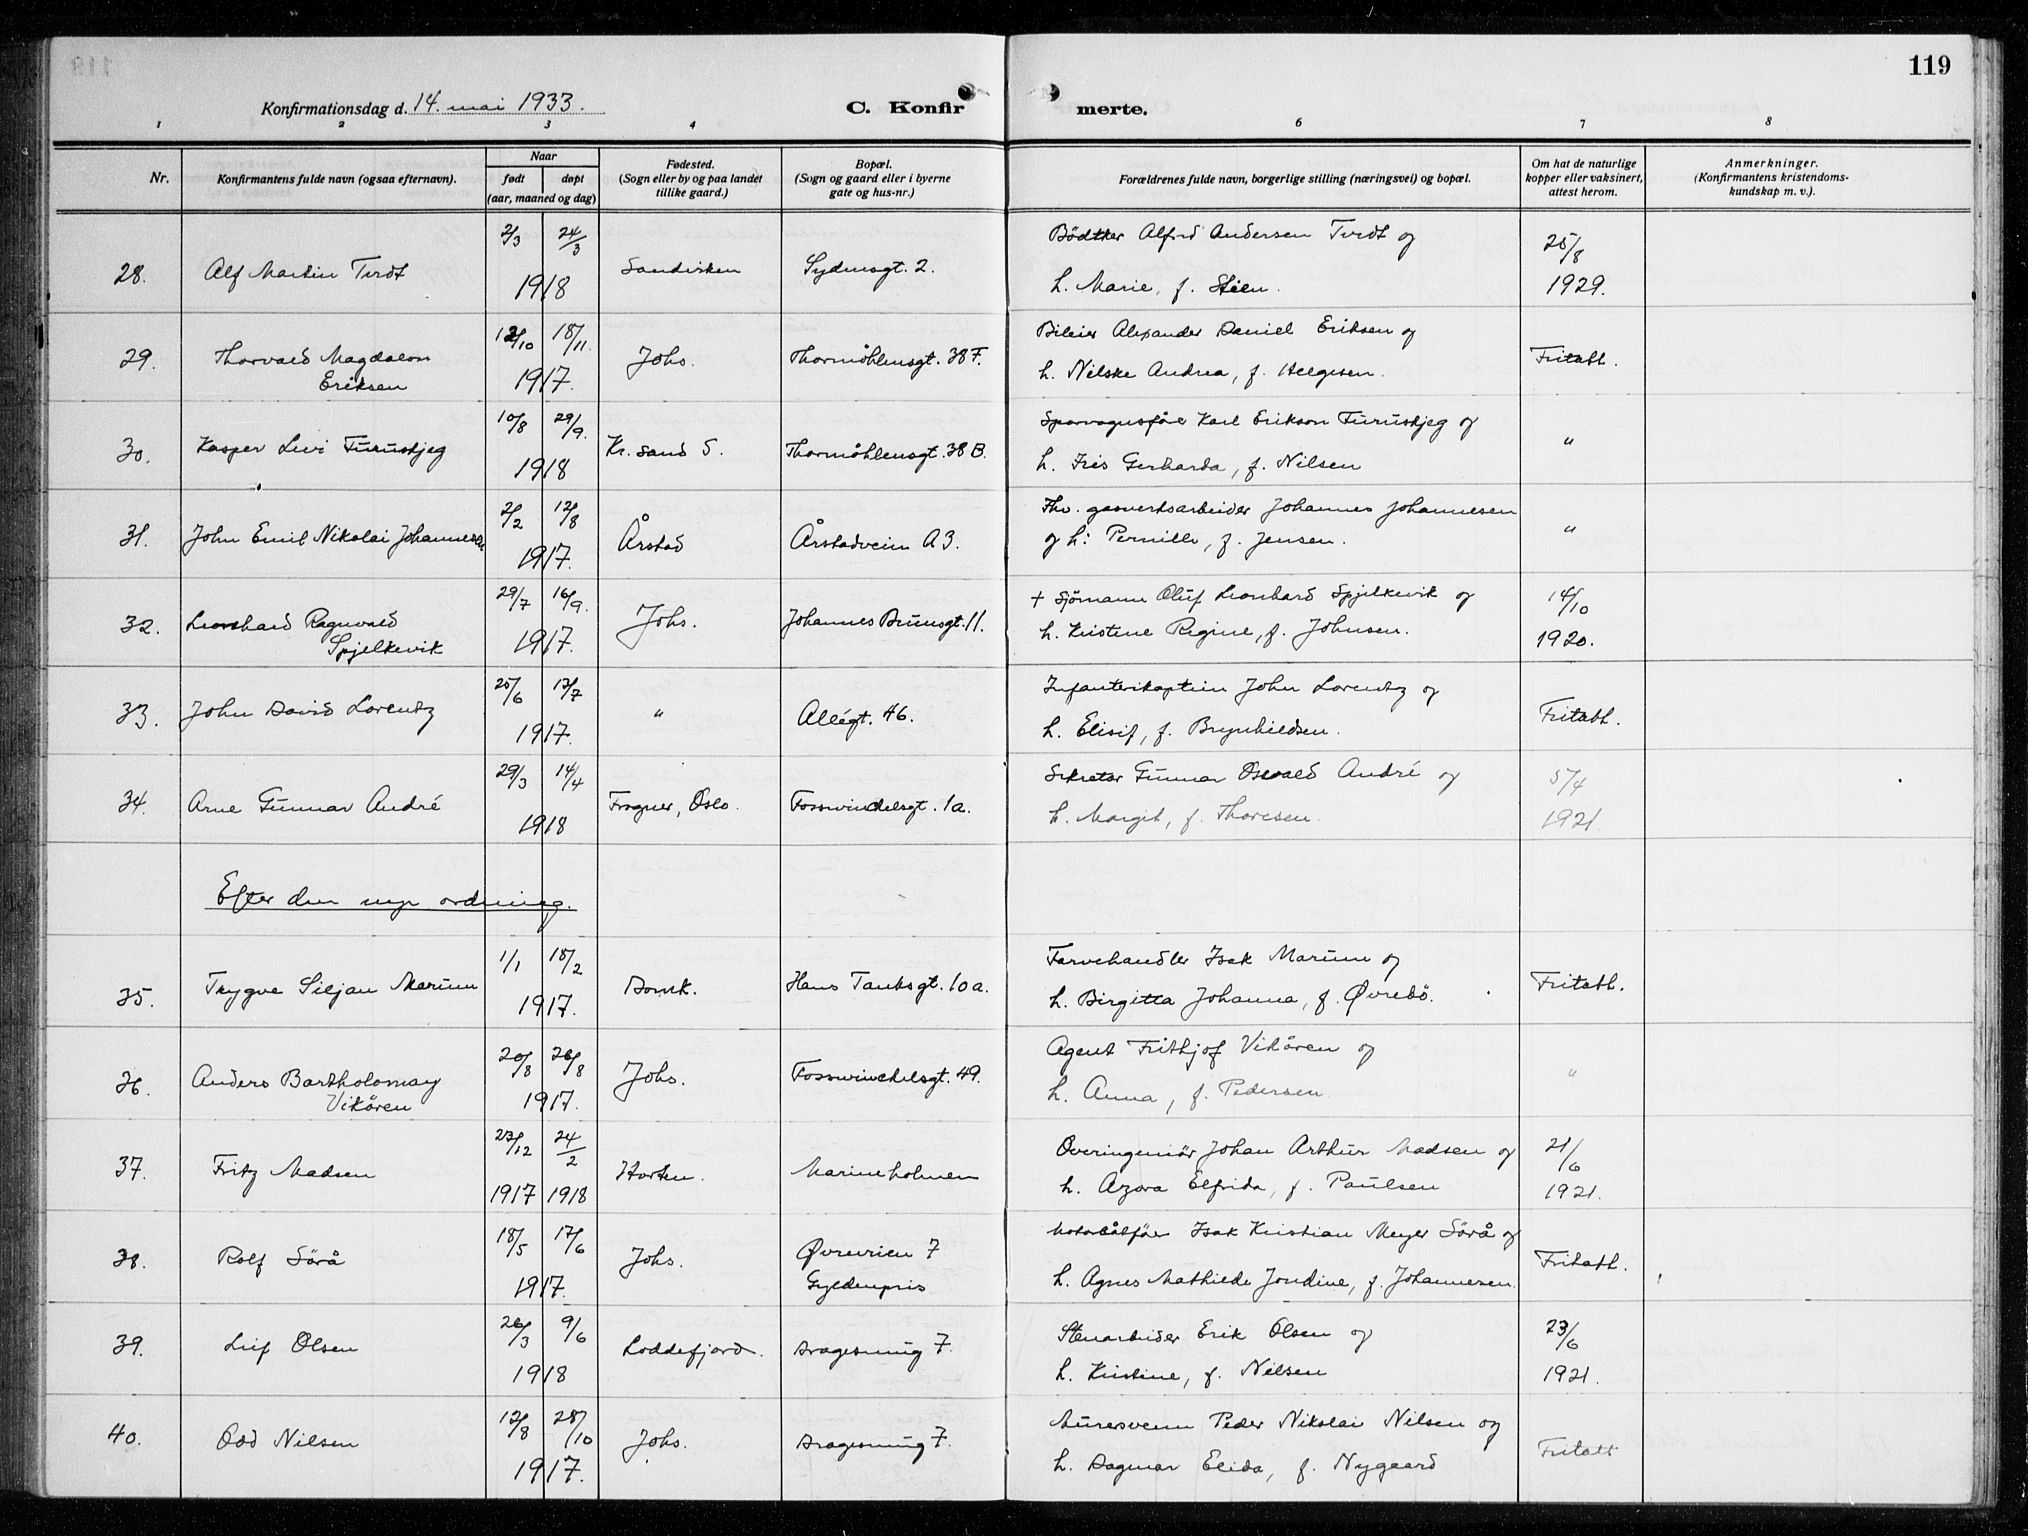 119
Konfirmationsdag d. 14. mai 1933.
C. Konfir merte.
1 2 3 4 6 7 8
Nr.
Konfirmantens fulde navn (ogsaa efternavn).
Naar
født døpt
(aar, maaned og dag)
Fødested.
(Sogn eller by og paa landet
tillike gaard.)
Bopæl.
(Sogn og gaard eller i byerne
gate og hus-nr.)
Forældrenes fulde navn, borgerlige stilling (næringsvei) og bopæl.
Om hat de naturlige
kopper eller vaksinert,
attest herom.
Anmerkninger.
(Konfirmantens kristendoms-
kundskap m. v.).
2/3 24/3 Bödtker Alfred Andersen Tvedt og 25/8
28. Alf Martin Tvedt Sandviken Sydnesgt. 2.
1918 h. Marie, f. Steen. 1929.
12/10 18/11. Bileier Alexander Daniel Eriksen og
29. Thorvald Magdalon Johs. Thormöhlensgt. 38 F. Fritatt.
Eriksen 1917. h. Nilske Andrea, f. Helgesen.
10/8 29/9. Sporvognsfører Karl Erikson Furuskjeg og
30. Kasper Levi Furuskjeg Kr. sand S. Thormöhlensgt. 38 B. "
1918 h. Iris Gerharda, f. Nilsen
2/2 12/8 Fhv. gasverksarbeider Johannes Johannesen
31. John Emil Nikolai Johannesen Årstad Årstadveien A 3. "
1917. og h: Pernille, f. Jensen.
29/7 16/9. + Sjömann Oluf Leonhard Spjelkevik og 14/10
32. Leonhard Ragnvald Johs. Johannes Brunsgt. 11.
Spjelkevik 1917. h. Kristine Regine, f. Johnsen. 1920.
25/6 17/7 Infanterikaptein John Lorentz og
33. John David Lorentz " Allégt. 46. Fritatt.
1917. h. Elisif, f. Brynhildsen.
29/3 14/4 Sekretær Gunnar Osvald André og 5/4
34. Arne Gunnar André Frogner, Oslo. Fosswinckelsgt. 1a.
1918 h. Margit, f. Thoresen. 1921
Efter den nye ordning.
1/1 18/2 Farvehandler Isak Marum og
35. Trygve Siljan Marum Domk. Hans Tanksgt. 10a. Fritatt.
1917. h. Birgitta Johanna, f. Øvrebö.
20/8 26/8 Agent Frithjof Vikören og
36. Anders Bartholomay Johs. Fosswinckelsgt. 49. "
Vikören 1917. h. Anna, f. Pedersen
23/12 24/2 Overingeniör Johan Arthur Madsen og 21/6
37. Fritz Madsen Horten. Marineholmen
1917 1918 h. Azora Elfrida, f. Paulsen 1921.
18/5 17/6 Motorbåtfører Isak Kristian Meyer Sörå og
38. Rolf Sörå Johs. Øvreveien 7 Fritatt.
1917. Gyldenpris h. Agnes Mathilde Jondine, f. Johannesen.
26/3 9/6 Stenarbeider Erik Olsen og 23/6
39. Leif Olsen Loddefjord. Dragesmug 7.
1918 h. Kristine, f. Nilsen 1921.
12/8 28/10 Murersvenn Peder Nikolai Nilsen og
40. Odd Nilsen Johs. Dragesmug 7. Fritatt
1917. h. Dagmar Elida, f. Nygaard